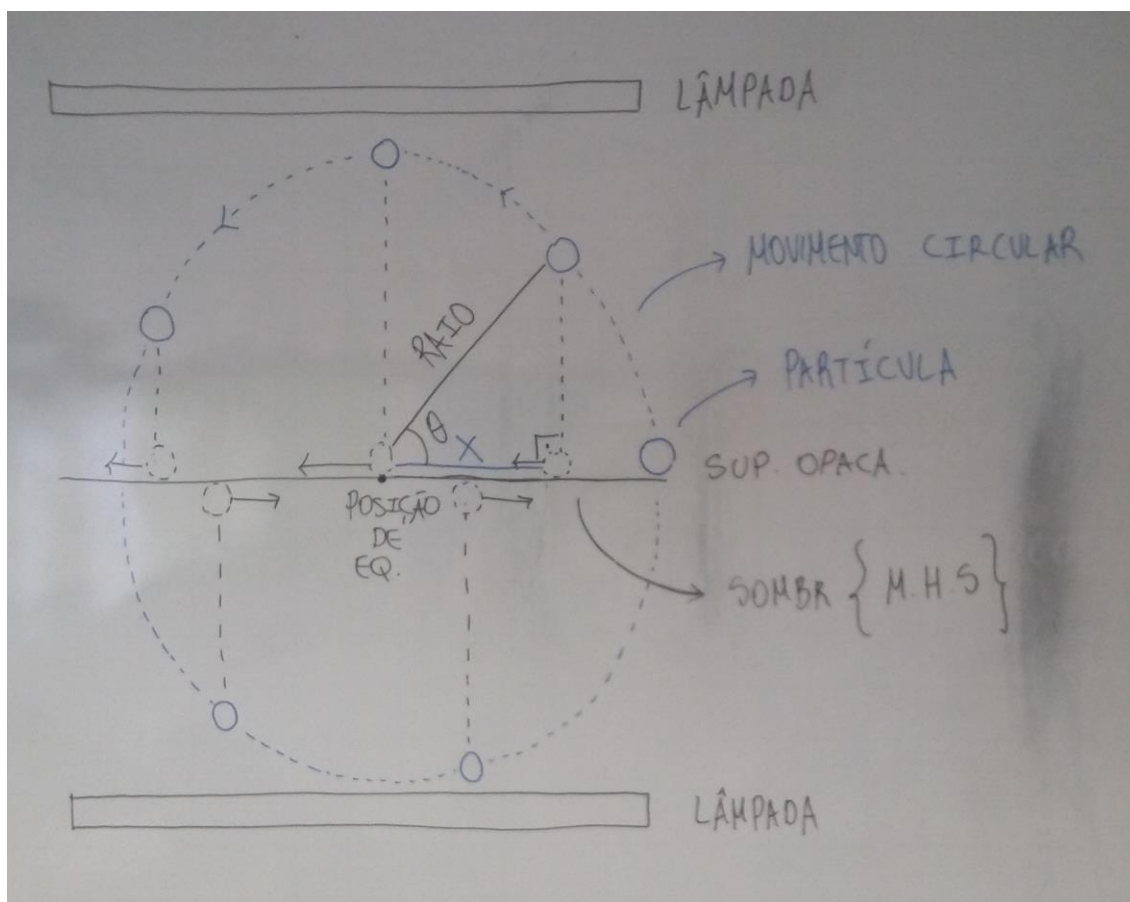 LÂMPADA
MOVIMENTO CIRCULAR
RAIO
PARTÍCULA
θ
X
SUP. OPACA.
POSIÇÃO
DE
EQ.
SOMBR { M.H.S }
LÂMPADA